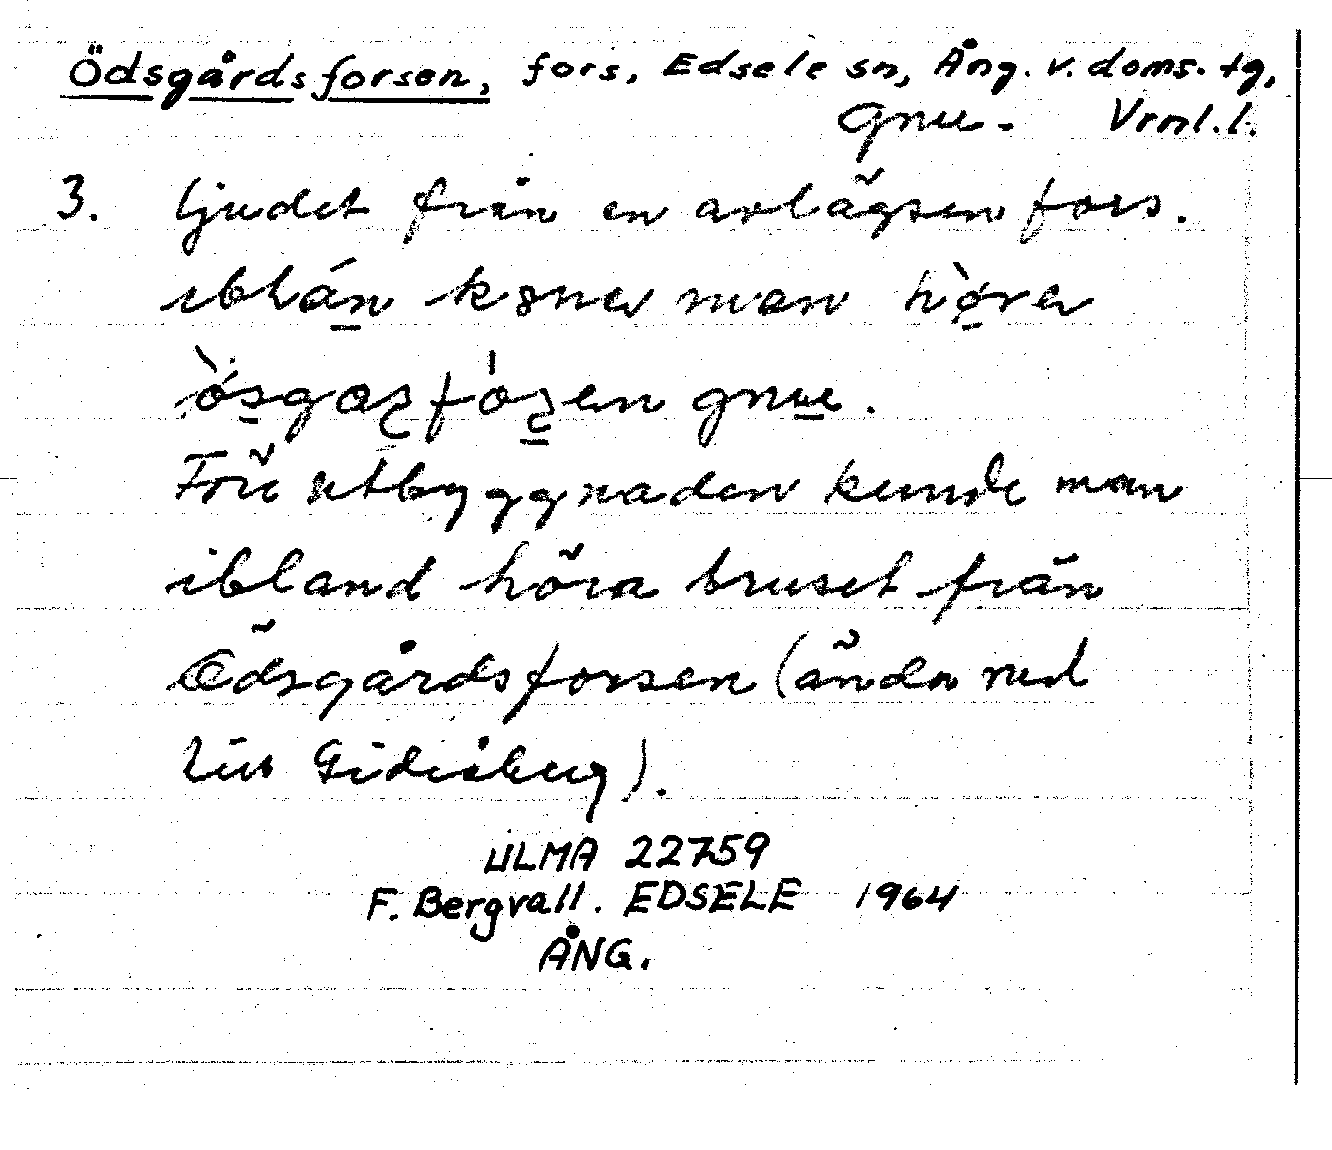 Ödsgårdsforsen, fors, Edsele sn, Ång. v. doms. tg,
Gnu-. Vrml.l.
3. ljudet från en avlägsen fors.
iblán kɔne man hø̀ra
gnɯe.
Före utbyggnaden kunde man
ibland höra bruset från
Ödsgårdsforsen (ända ned
till Gideåberg).
ULMA 22759
F. Bergvall. EDSELE 1964
ÅNG.